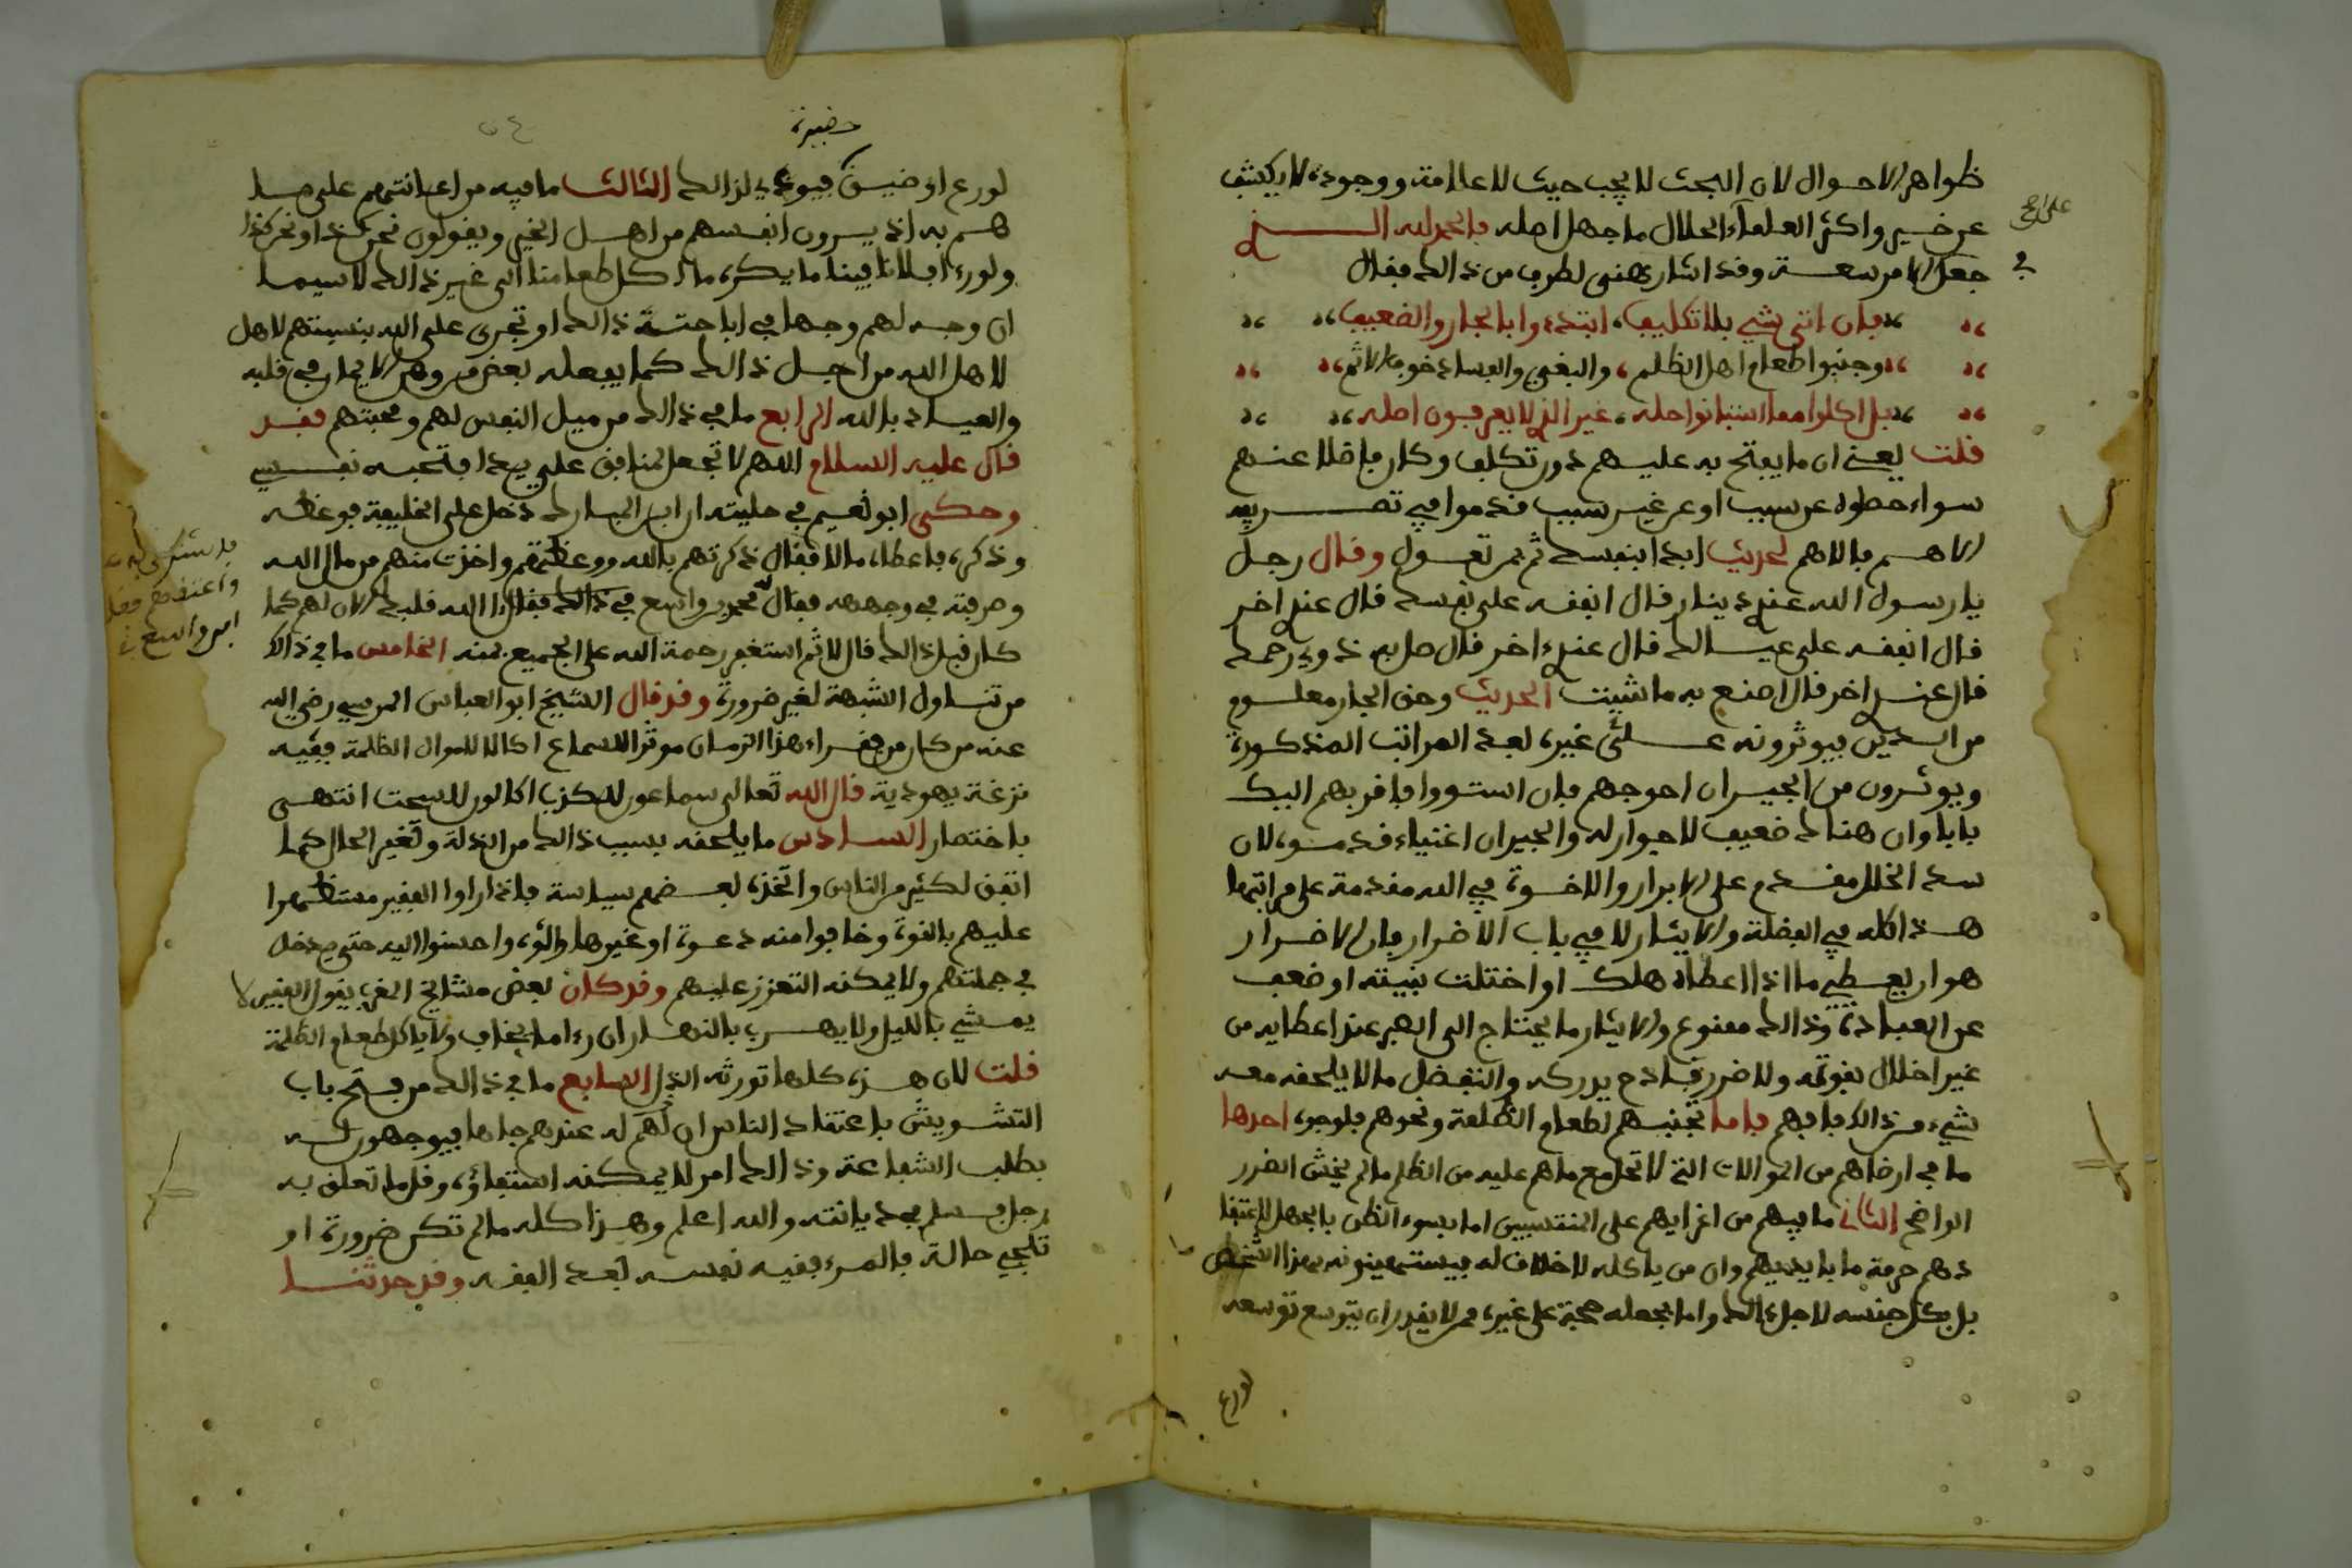 ظواهر الاحوال لان البحث لا يجب حيث لا علامة ووجوده لا يكشف
عن خسير واكثر العلماء الحلال ما جهل اصله فالحمد لله الذي
جعل الامر سعة وقد اشار هنى لطرف من ذالك فقال
فان اتى شي بلا تكليف، ابتدءوا بالجار والضعيف
وجنبوا طعام اهل الظلم، والبغي والفساد خوف الاثم
بل اكلوا مما استبانوا حله، غير الذي لا يعرفون اصله
قلت يعني ان ما يفتح به عليهم دون تكلف وكان فاضلا عنهم
سواء حصوله عن سبب او عن غير سبب قدموا في تصريفه
الاهم فالاهم لحديث ابدا بنفسك ثم بمن تعول وقال رجل
يا رسول الله عندي دينار قال انفقه على نفسك قال عندي اخر
قال انفقه على عيالك قال عندي اخر قال صل به ذوي رحمك
قال عندي اخر قال اصنع به ما شيت الحديث وحق الجار معلوم
من الدين فيوثرونه على غيره بعد المراتب المذكورة
ويوثرون من الجيران احوجهم فان استووا فاقربهم اليك
بابا وان هناك ضعيف لا جوار له والجيران اغنياء قدموه لان
سد الخلل مقدم على الابرار والاخوة في الله مقدمة على مراتبها
هذا كله في الفضلة والايثار لا في باب الاضرار فان الاضرار
هو ان يعطي ما اذا اعطاه هلك او اختلت بنيته او ضعف
عن العبادة وذالك ممنوع والايثار ما يحتاج الى الصبر عند اعطايه من
غير اخلال بقوته ولا ضرر فادح يدركه والتفضل ما لا يلحقه معه
شيء من ذالك فافهم فاما تجنبهم لطعام الظلمة ونحوهم فلوجوه احدها
ما في ارضاهم من الموالات التي لا تحل مع ما هم عليه من الظلم ما لم يخش الضرر
الواضح الثاني ما فيهم من اغرايهم على المنتسبين اما بسوء الظن بالجهل لاعتقا
دهم حرمة ما بايديهم وان من ياكله لا خلاق له فيستهينونه بهذا الشخص
بل بكل جنسه لاجل ذالك واما بجعله حجة على غيره ممن لا يقدر ان يتوسع توسعه
لورع
لورع او ضيق فيوذي لذالك الثالث ما فيه من اعانتهم على ما
هم به اذ يرون انفسهم من اهل الخير ويقولون نحن كذا ونحن كذا
ولولا فلانا فينا ما يكره ما اكل طعامنا الى غير ذالك لا سيما
ان وجه لهم وجها في اباحة ذالك او تجرى على الله بنسبتهم لاهل
لاهل الله من اجل ذالك كما يفعله بعض من وهن الايمان في قلبه
والعياذ بالله الرابع ما في ذالك من ميل النفس لهم ومحبتهم فقد
قال عليه السلام اللهم لا تجعل لمنافق علي يدا فتحبه نفسي
وحكى ابو نعيم في حليته ان ابن المبارك دخل على الخليفة فوعظه
وذكره فاعطاه مالا فقال ذكرتهم بالله ووعظتهم واخذت منهم من مال الله
وصرفته في وجهه فقال له محمد بن واسع في ذالك فقال الله قلبك الان لهم كما
كان قبل ذالك قال لا ثم استغفر رحمة الله على الجميع بمنه الخامس ما في ذالك
من تناول الشبهة لغير ضرورة وقد قال الشيخ ابو العباس المرسي رضي الله
عنه من كان من فقراء هذا الزمان موثر السماع اكالا لاموال الظلمة ففيه
نزغة يهودية قال الله تعالى سماعون للكذب اكالون للسحت انتهى
باختصار السادس ما يلحقه بسبب ذالك من الذلة وتغير الحال كما
اتفق لكثير من الناس واتخذه بعضهم سياسة فاذا راوا الفقير مستظهرا
عليهم بالقوة وخافوا منه دعوة او غيرها والوه واحسنوا اليه حتى يدخل
في جملتهم ولا يمكنه التعزز عليهم وقد كان بعض مشايخ المغرب يقول الفقير لا
يمشي بالليل ولا يهرب بالنهار ان راءاما يخاف ولا ياكل طعام الظلمة
قلت لان هذه كلها تورثه الذل السابع ما في ذالك من فتح باب
التشويش باعتقاد الناس ان لهم له عندهم جاها فيوجهون له
بطلب الشفاعة وذالك امر لا يمكنه استيفاؤه وقلما تعلق به
رجل فسلم في ديانته والله اعلم وهذا كله ما لم تكن ضرورة او
تلجي حالة فالمرء فقيه نفسه بعد الفقه وقد حدثنا